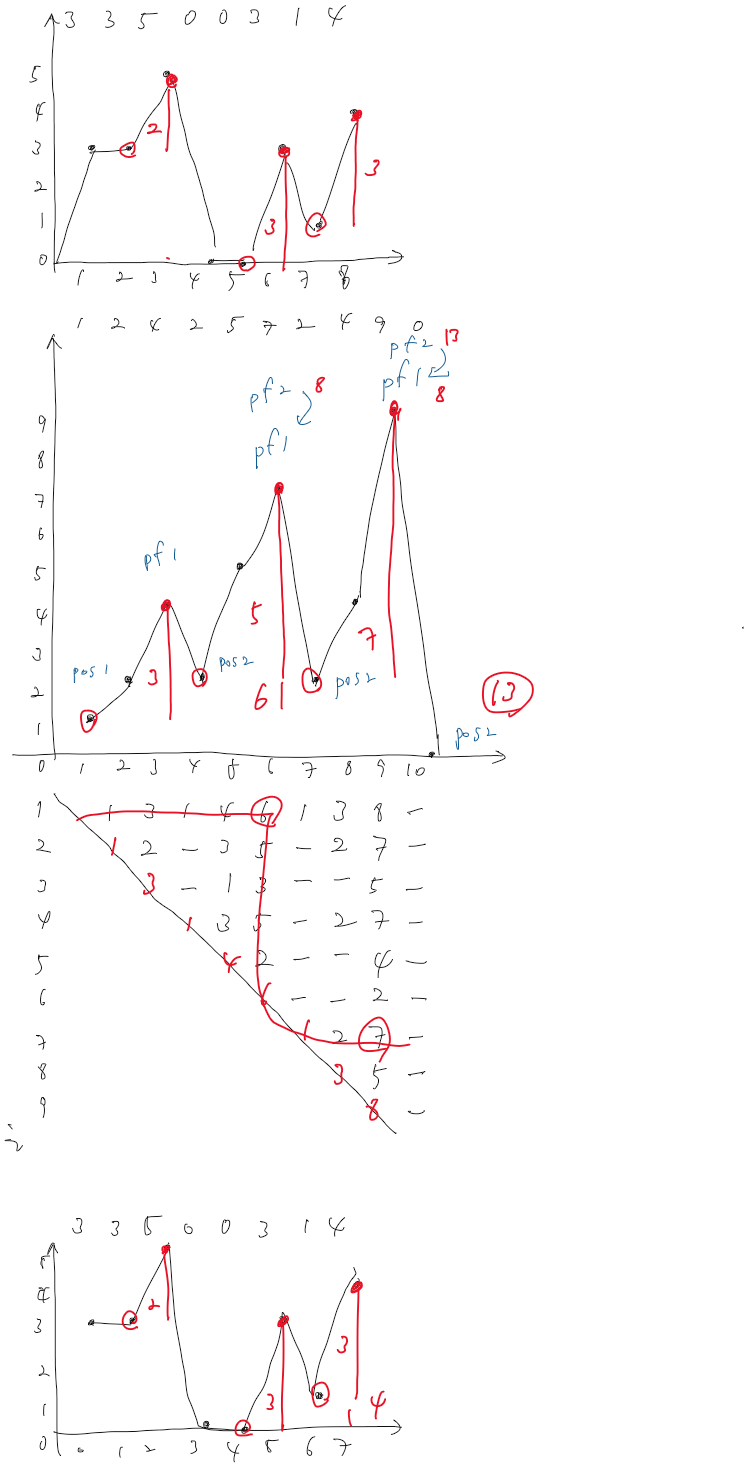 3 3 5 0 0 3 1 4
5
4
3
2
1
0
2
3
3
1 2 3 4 5 6 7 8
1 2 4 2 5 7 2 4 9 0
pf2 13
pf1 8
pf2 8
pf1
9
8
7
6
5
4
3
2
1
pf1
5
7
pos1
3
pos2
6
pos2
13
pos2
0 1 2 3 4 5 6 7 8 9 10
1 1 3 1 4 6 1 3 8 -
2 1 2 - 3 5 - 2 7 -
3 3 - 1 3 - - 5 -
4 1 3 5 - 2 7 -
5 4 2 - - 4 -
6 6 - - 2 -
7 1 2 7 -
8 3 5 -
9 8 -
3 3 5 0 0 3 1 4
5
4
3
2
1
0
2
3
3
1 4
0 1 2 3 4 5 6 7